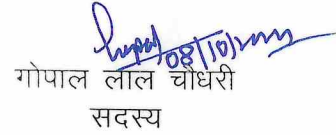 08/10/2022
गोपाल लाल चौधरी
सदस्य